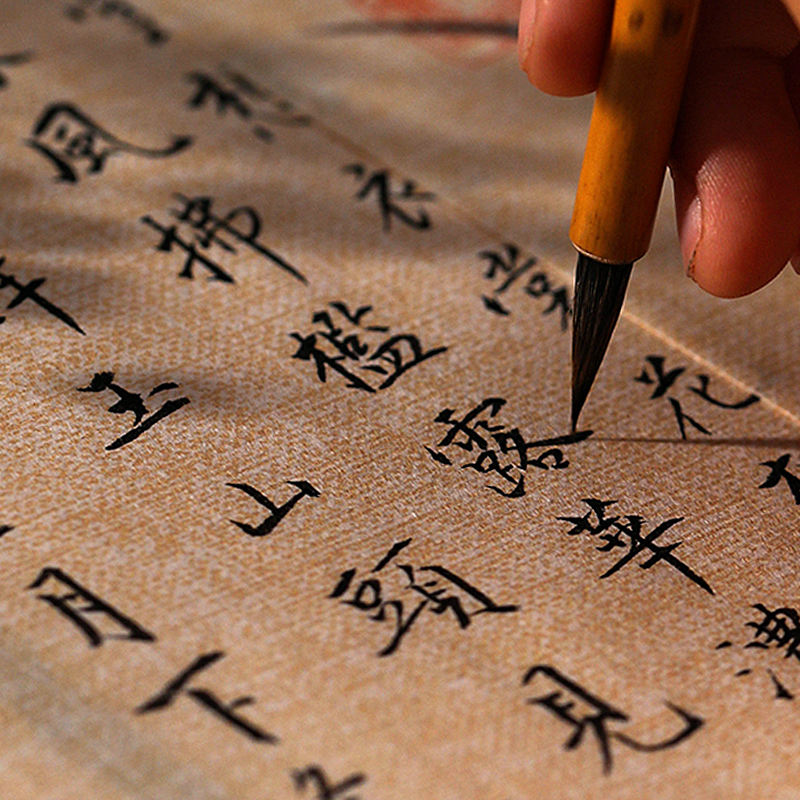 想衣裳花
風拂檻露華濃
玉山頭見
月下